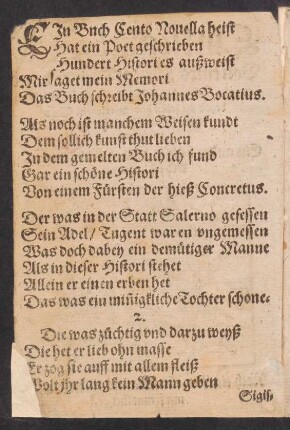 EIn Buch Cento Nouella heist
Hat ein Poet geschrieben
Hundert Histori es außweist
Mir saget mein Memori
Das Buch schreibt Johannes Bocatius.
Als noch ist manchem Weisen kundt
Dem sollich kunst thut lieben
In dem gemelten Buch ich fund
Gar ein schöne Histori
Von einem Fürsten der hieß Concretus.
Der was in der Statt Salerno gesessen
Sein Adel/ Tugent waren vngemessen
Was doch dabey ein demütiger Manne
Als in dieser Histori stehet
Allein er einen erben het
Das was ein minigkliche Tochter schone.
2.
Die was züchtig vnd darzu weyß
Die het er lieb ohn masse
Er zog sie auff mit allem fleiß
Wolt jhr lang kein Mann geben
Sigis,